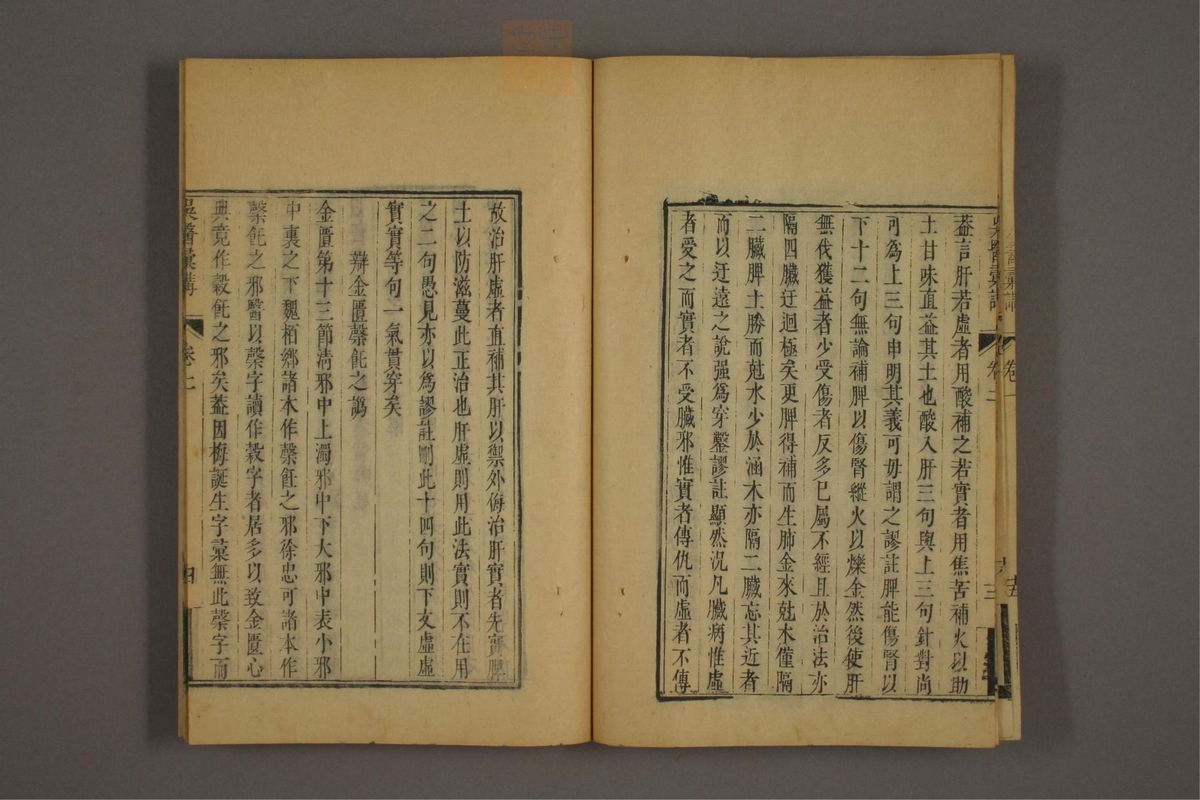 蓋言肝若虛者用酸補之若實者用焦苦補火以助
土甘味直益其土也酸入肝三句與上三句針對尚
可為上三句申明其義可毋謂之謬註脾能傷腎以
下十二句無論補脾以傷腎縱火以爍金然後使肝
無伐獲益者少受傷者反多已屬不經且於治法亦
隔四臟迂迴極矣更脾得補而生肺金來尅木僅隔
二臟脾土勝而尅水少於涵木亦隔二臟忘其近者
而以迂遠之說强為穿鑿謬註顯然況凡臟病惟虛
者受之而實者不受臟邪惟實者傳仇而虛者不傳
故治肝虛者直補其肝以禦外侮治肝實者先實脾
土以防滋蔓此正治也肝虛則用此法實則不在用
之二句愚見亦以為謬註刪此十四句則下文虛虛
實實等句一氣貫穿矣
辯金匱䅽飥之譌
金匱第十三節清邪中上濁邪中下大邪中表小邪
中裏之下魏栢鄉諸本作䅽飥之邪徐忠可諸本作
䅽飥之邪醫以䅽字讀作穀字者居多以致金匱心
典竟作穀飥之邪矣蓋因梅誕生字彙無此䅽字而
吳醫彙講
卷二
四